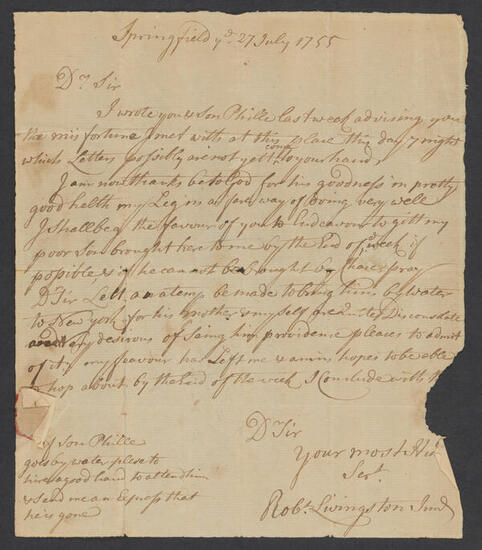 Springfield yᵉ 27 July 1755
Dʳ Sir
I wrote you & Son Phille last week advising you
the misfortune I met with at this place this day 7 night
which Letters possibly are not yett come to your hand,
I am now thanks be to God for his goodness in pretty
good health my Leg in a fare way of doing very well
I shall beg the favour of you to Endeavour to gitt my
poor Son brought here to me by the End of yᵉ week if
possible, & if he cannot be brought by Chaies pray
Dʳ Sir Lett an atemp be made to bring him by water
to New York, for his mother & myself are Disconsolate
and very desirous of Seing him providence pleases to admit
of it; my feavour has Left me & am in hopes to be able
to hop about by the End of the week I Conclude with
Dʳ Sir
Your most Hu
Serᵗ
Robᵗ Livingston Junʳ
if son Phille
goes by water plese to
hire a good hand to attend him
& Send me an Express that
he is gone